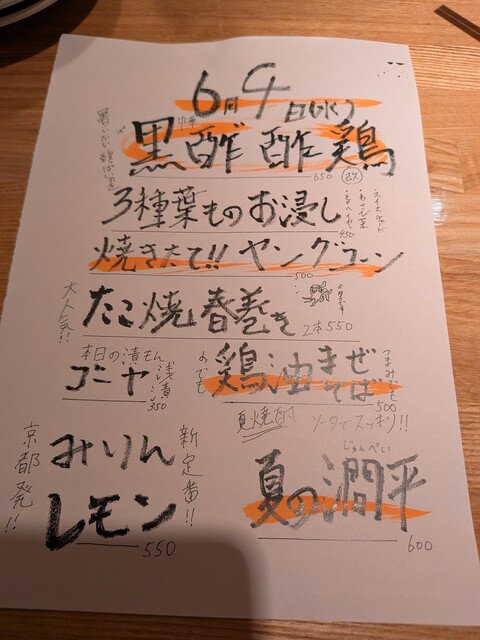 6月4日(水)
中華
黒酢酢鶏
650
3種葉ものお浸し
・スイスチャード
・あさひ菜
450
焼きたて!!ヤングコーン
500
大人気!!
たこ焼春巻き
2本550
本日の漬もん
ゴーヤ浅漬
350
のでも
鶏油まぜそば
つまみでも
500
夏焼酎 ソーダでスッキリ!!
京都発!!
みりん
レモン
新定番!!
550
じゅんぺい
夏の潤平
600